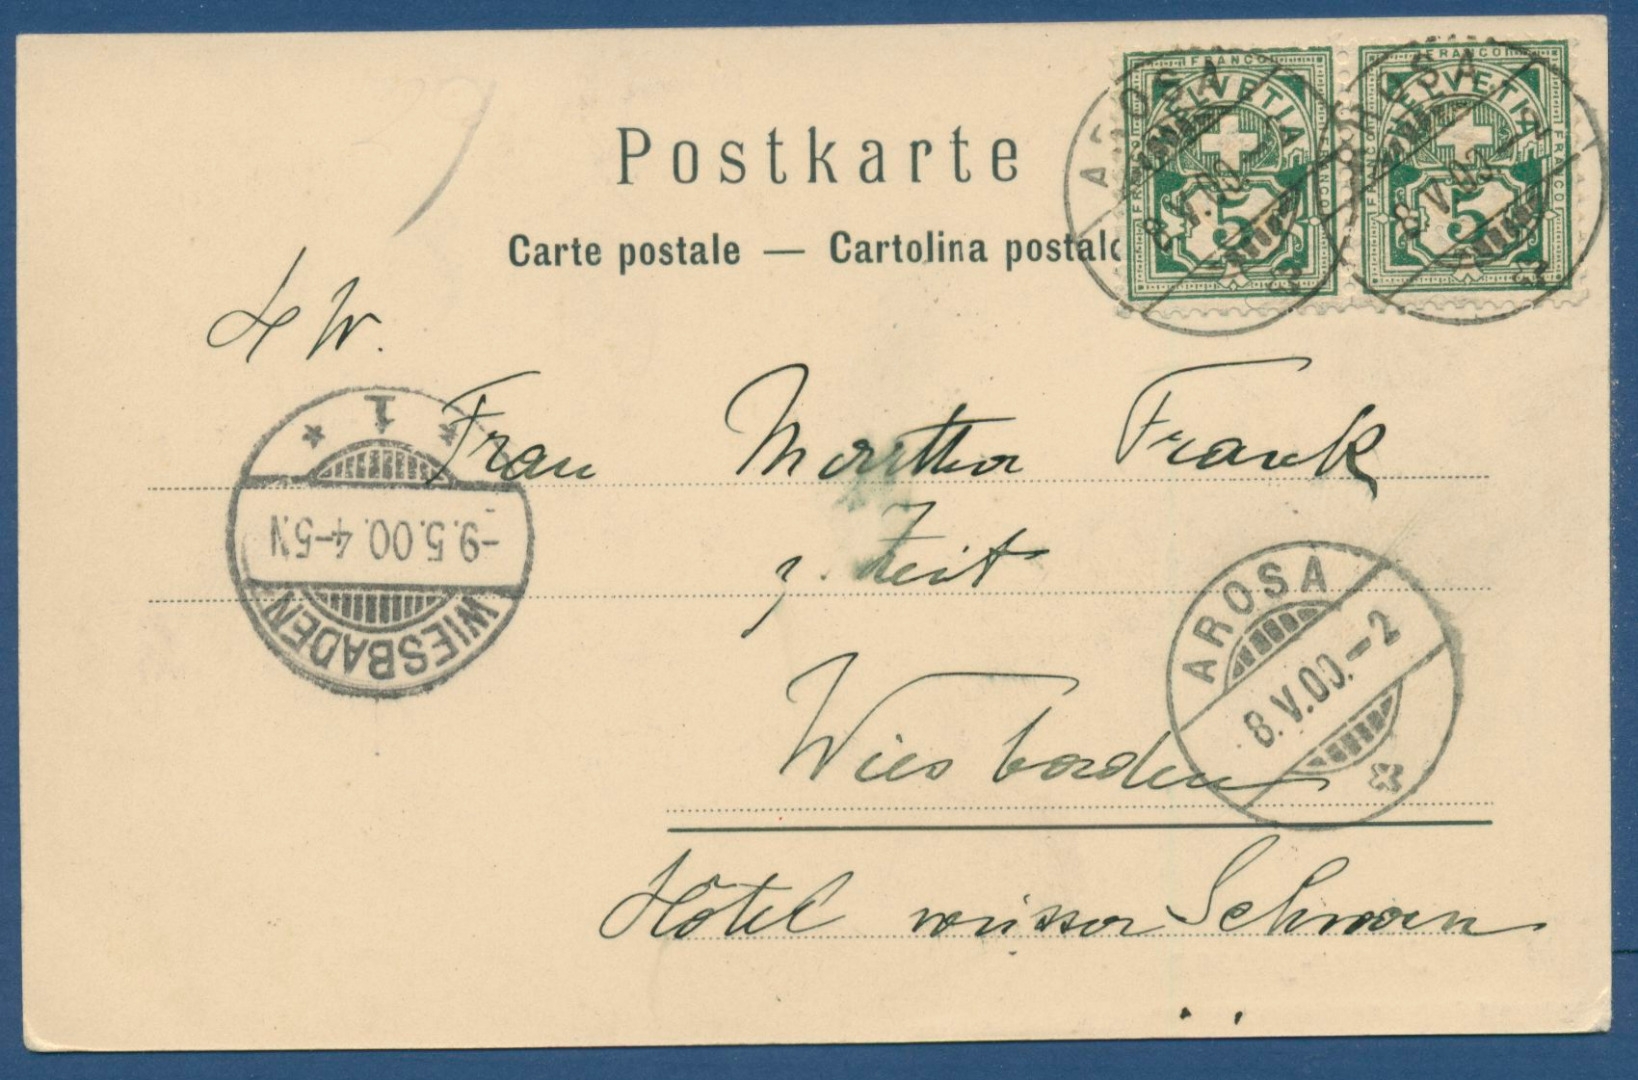 Postkarte
Carte postale — Cartolina postale
FRANCO HELVETIA FRANCO 5 FRANCO
FRANCO HELVETIA FRANCO 5 FRANCO
AROSA 8.V.00.
AROSA 8.V.00.
Frau Martha Frank
z. Zeit
Wiesbaden
Hôtel weisser Schwan
WIESBADEN
-9.5.00. 4-5N.
* 1 *
AROSA
8.V.00.-2